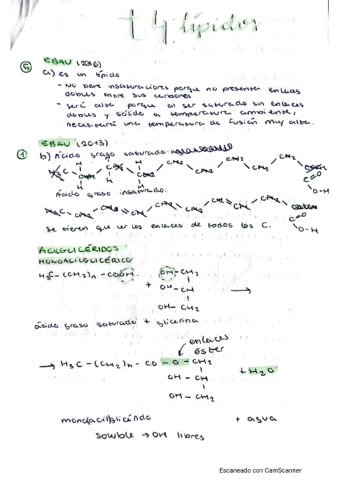 t4 lípidos
⑤ EBAU (2016)
a) Es un lípido
- No tiene insaturaciones porque no presenta enlaces
dobles entre sus carbonos
- será alta porque al ser saturado sin enlaces
dobles y sólido a temperatura ambiente,
necesitará una temperatura de fusión muy alta.
EBAU (2013)
① b) Ácido graso saturado:
Ácido graso insaturado:
Se tienen que ver los enlaces de todos los C.
ACILGLICÉRIDOS
MONOACILGLICÉRICO
H3C-(CH2)n-COOH + OH-CH2
OH-CH
OH-CH2
ácido graso saturado + glicerina
enlaces
éster
→ H3C-(CH2)n-CO-O-CH2
OH-CH + H2O
OH-CH2
monoacilglicérido + agua
soluble → OH libres
Escaneado con CamScanner